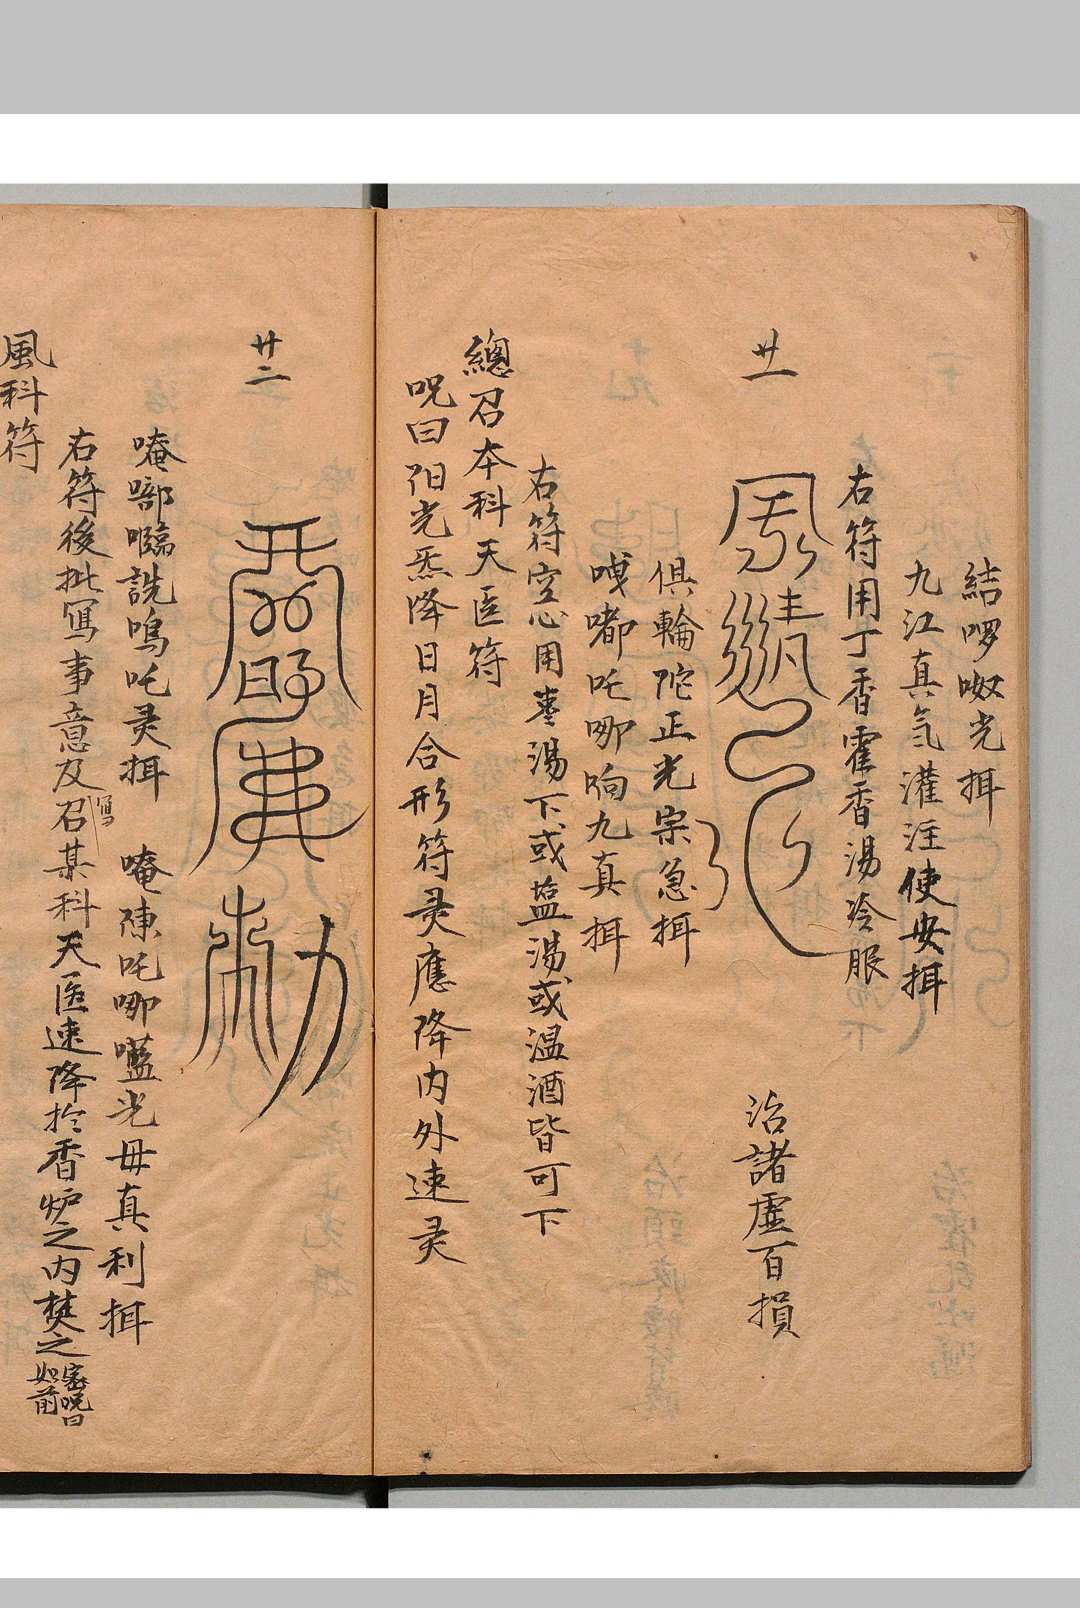 結啰呶光揖
九江真炁灌注使安揖
右符用丁香霍香湯冷服
廿一
治諸虛百損
俱輪陀正光宗急揖
嘟吒哪响九真揖
右符空心用棗湯下或塩湯或温酒皆可下
總召本科天医符
呪曰阳光炁降日月合形符灵應降内外速灵
廿二
唵啣𡄸詵鳴吒灵揖 唵陳吒哪嚂光毋真利揖
右符後批写事意及召寫某科天医速降扵香炉之内焚之密呪曰如前
風科符